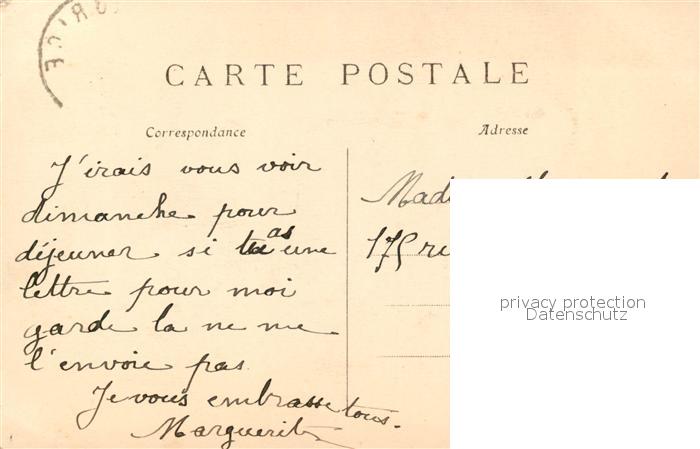 CARTE POSTALE
Correspondance
Adresse
J'irais vous voir
dimanche pour
déjeuner si tu as une
lettre pour moi
garde la ne me
l'envoie pas
Je vous embrasse tous.
Marguerite
175 ru
privacy protection
Datenschutz